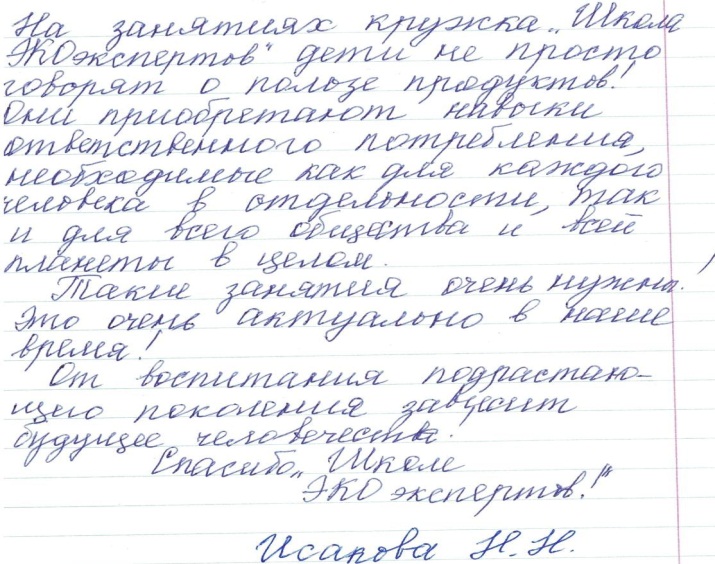 На занятиях кружка „Школа
ЭКОэкспертов" дети не просто
говорят о пользе продуктов!
Они приобретают навыки
ответственного потребления,
необходимые как для каждого
человека в отдельности, так
и для всего общества и всей
планеты в целом.
Такие занятия очень нужны!
Это очень актуально в наше
время!
От воспитания подрастаю-
щего поколения зависит
будущее человечества.
Спасибо „Школе
ЭКОэкспертов!"
Исакова Н.Н.